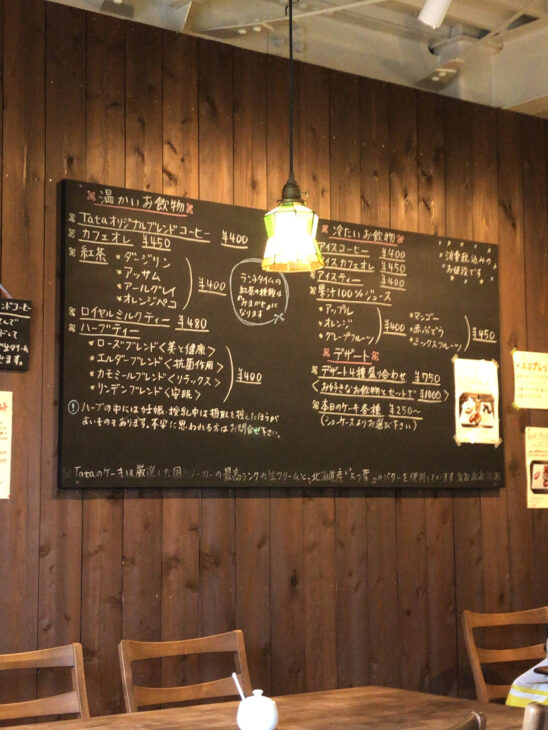 温かいお飲物
Tataオリジナルブレンドコーヒー ¥400
カフェオレ ¥450
紅茶
・ダージリン
・アッサム
・アールグレイ
・オレンジペコ
¥400
ランチタイムの
紅茶の種類は
なります
ロイヤルミルクティー ¥480
ハーブティー
・ローズブレンド＜美と健康＞
・エルダーブレンド＜抗菌作用＞
・カモミールブレンド＜リラックス＞
・リンデンブレンド＜安眠＞
¥400
ハーブの中には妊娠、授乳中は摂取を控えたほうが
よいものもあります。不安に思われる方はお問合せ下さい。
冷たいお飲物
アイスコーヒー ¥400
アイスカフェオレ ¥450
アイスティー ¥400
果汁100%ジュース
・アップル
・オレンジ
・グレープフルーツ
¥400
・マンゴー
・赤ぶどう
・ミックスフルーツ
¥450
消費税込みの
お値段です
デザート
デザート4種盛り合わせ ¥750
＜お好きなお飲物とセットで ¥1000＞
本日のケーキ各種 ¥250～
(ショーケースよりお選び下さい)
Tataのケーキは厳選した国 メーカーの最高ランクの生クリームと、北海道産 のバターを使用しています